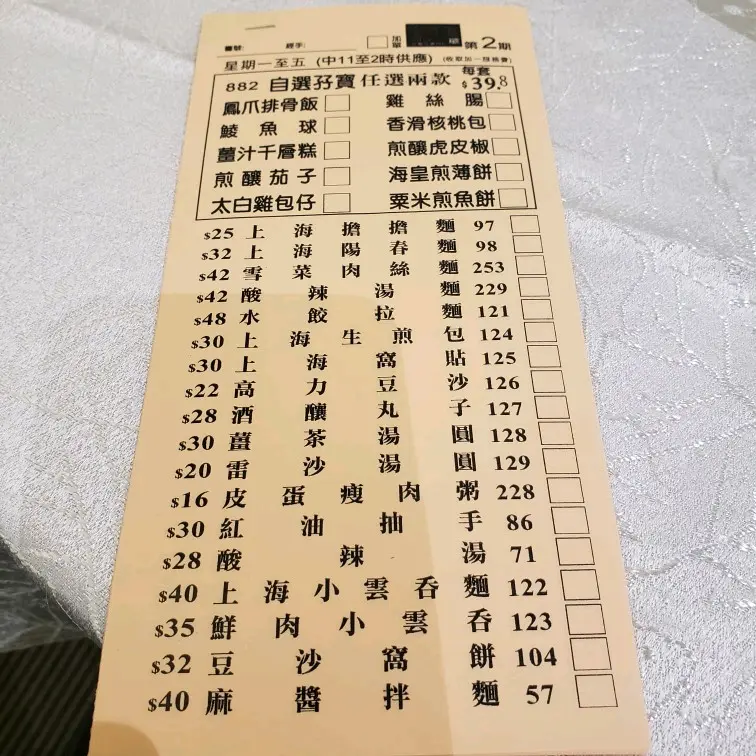 加單 第2期
臺號: 經手:
星期一至五 (中11至2時供應) (收取加一服務費)
882 自選孖寶任選兩款 每套 $39.8
鳳爪排骨飯 雞絲腸
鯪魚球 香滑核桃包
薑汁千層糕 煎釀虎皮椒
煎釀茄子 海皇煎薄餅
太白雞包仔 粟米煎魚餅
$25 上海擔擔麵 97
$32 上海陽春麵 98
$42 雪菜肉絲麵 253
$42 酸辣湯麵 229
$48 水餃拉麵 121
$30 上海生煎包 124
$30 上海窩貼 125
$22 高力豆沙 126
$28 酒釀丸子 127
$30 薑茶湯圓 128
$20 雷沙湯圓 129
$16 皮蛋瘦肉粥 228
$30 紅油抽手 86
$28 酸辣湯 71
$40 上海小雲吞麵 122
$35 鮮肉小雲吞 123
$32 豆沙窩餅 104
$40 麻醬拌麵 57